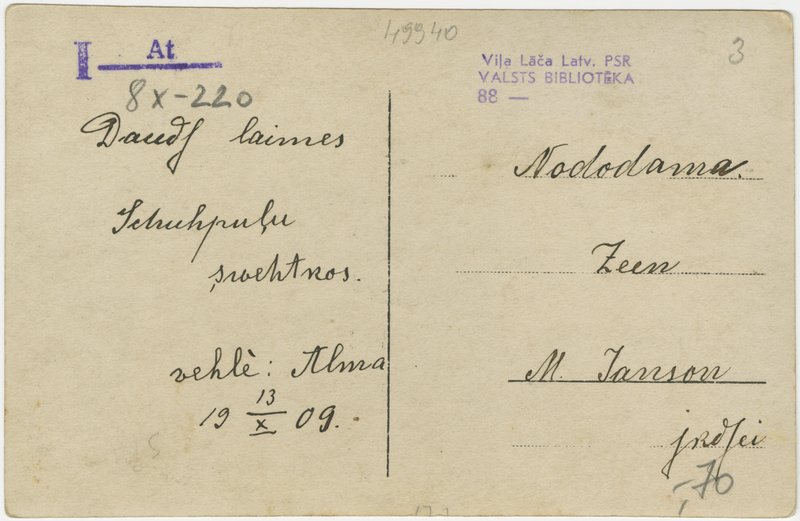 49940
I At
8x-220
Viļa Lāča Latv. PSR
VALSTS BIBLIOTĒKA
88 —
3
Daudſ laimes
Schuhpuļu
şwehtkos.
vehlè: Alma
19 13/X 09.
Nododama.
Zeen
M. Janson
jkdſei
,70